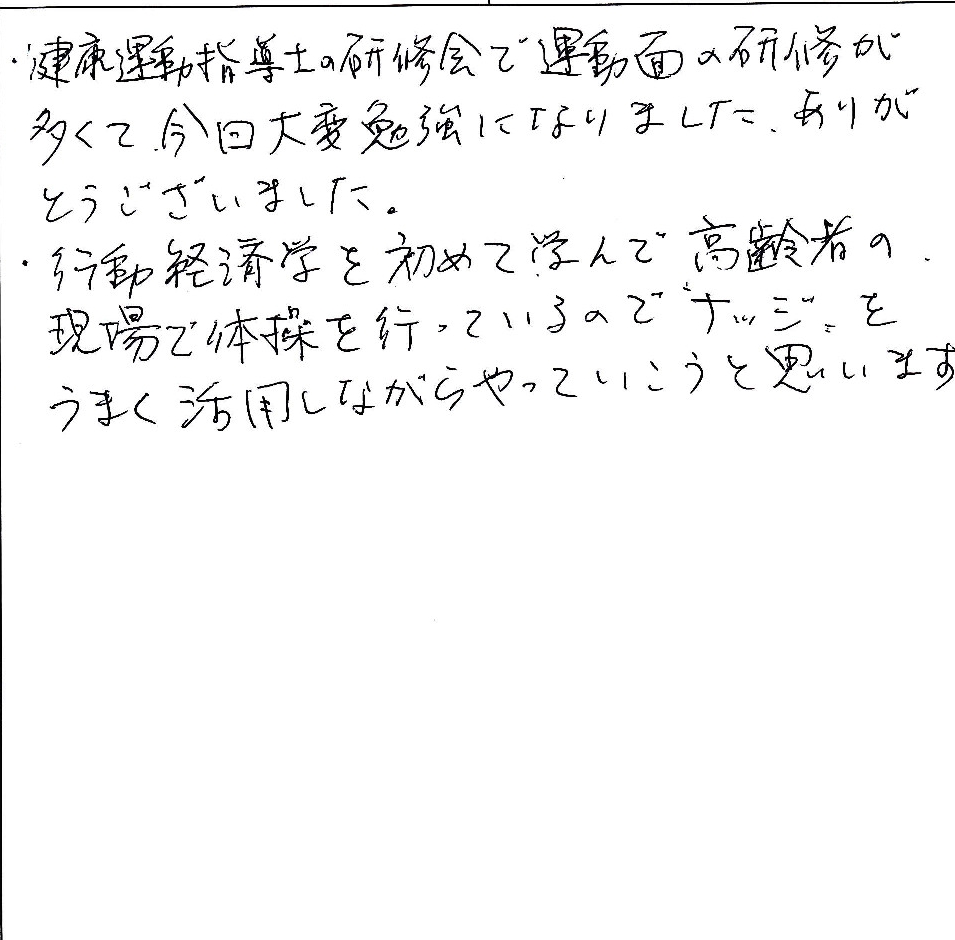 ・健康運動指導士の研修会で運動面の研修が
多くて、今回大変勉強になりました。ありが
とうございました。
・行動経済学を初めて学んで高齢者の
現場で体操を行っているので“ナッジ”を
うまく活用しながらやっていこうと思います